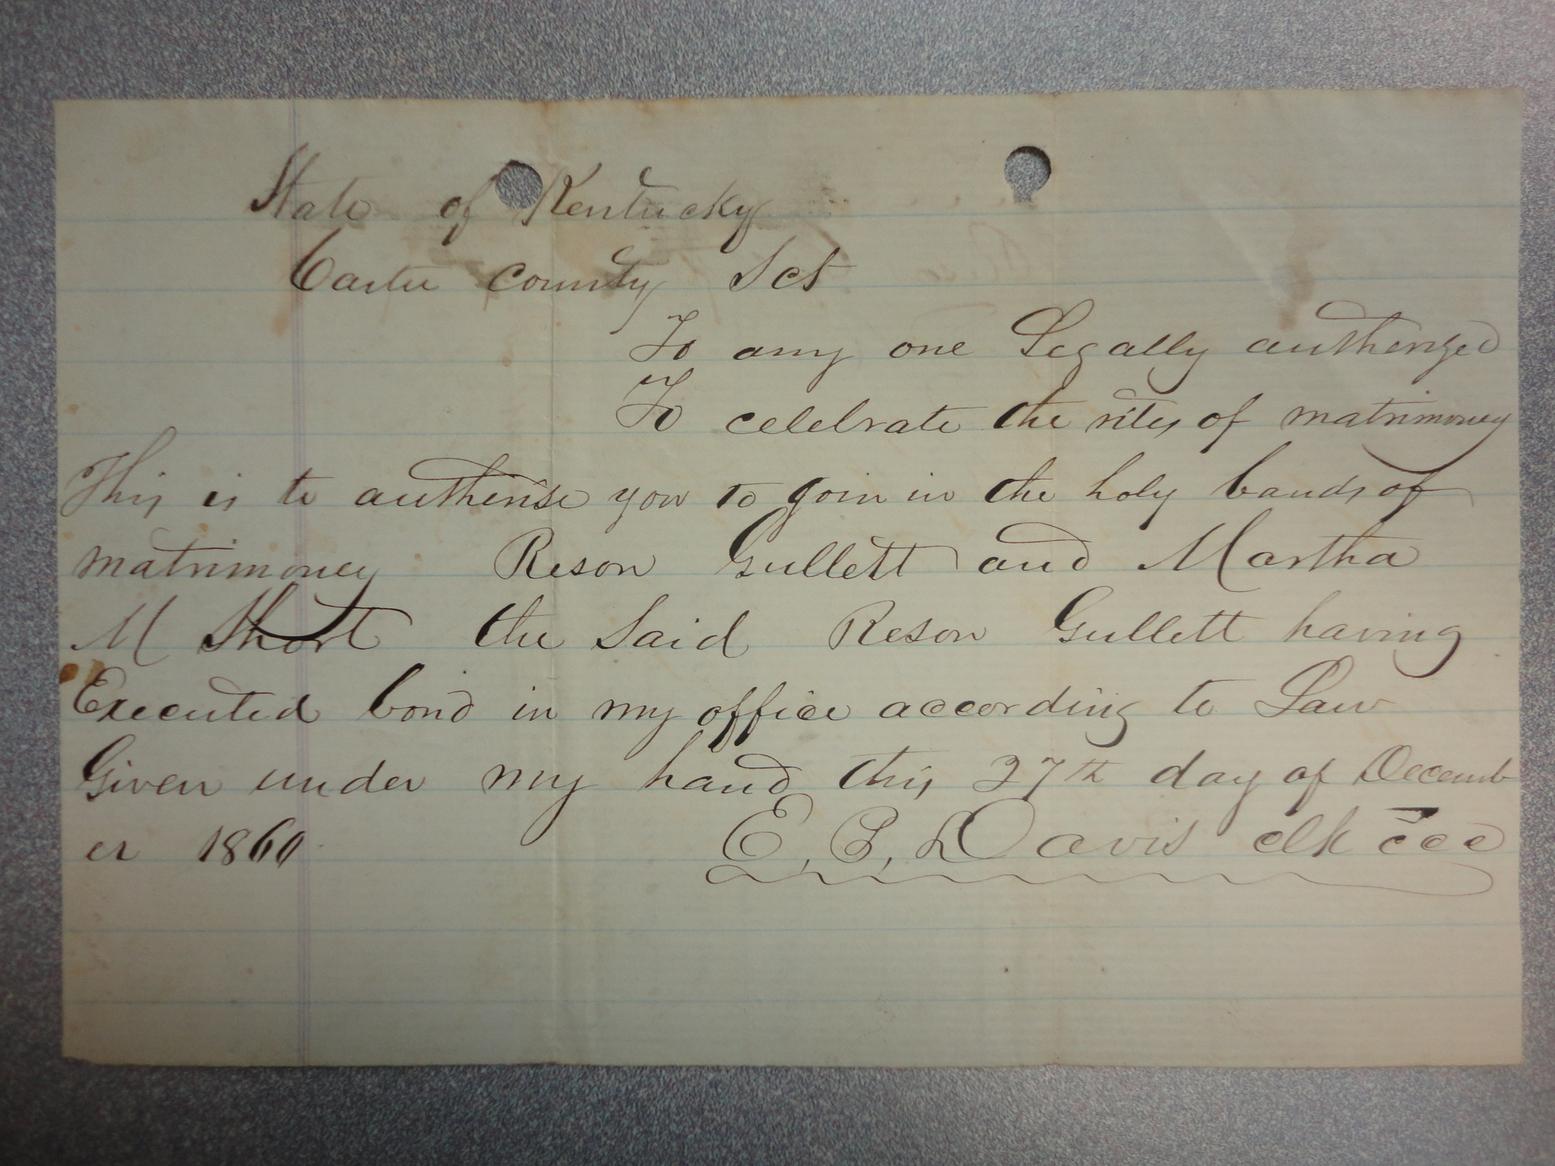 State of Kentucky
Carter County Sct
To any one Legally autherized
To celebrate the rites of matrimoney
This is to autherise you to join in the holy bands of
matrimoney Reson Gullett and Martha
M Short the Said Reson Gullett having
Executed bond in my office according to Law
Given under my hand this 27th day of Decemb
er 1860 E. B. Davis clk ccc